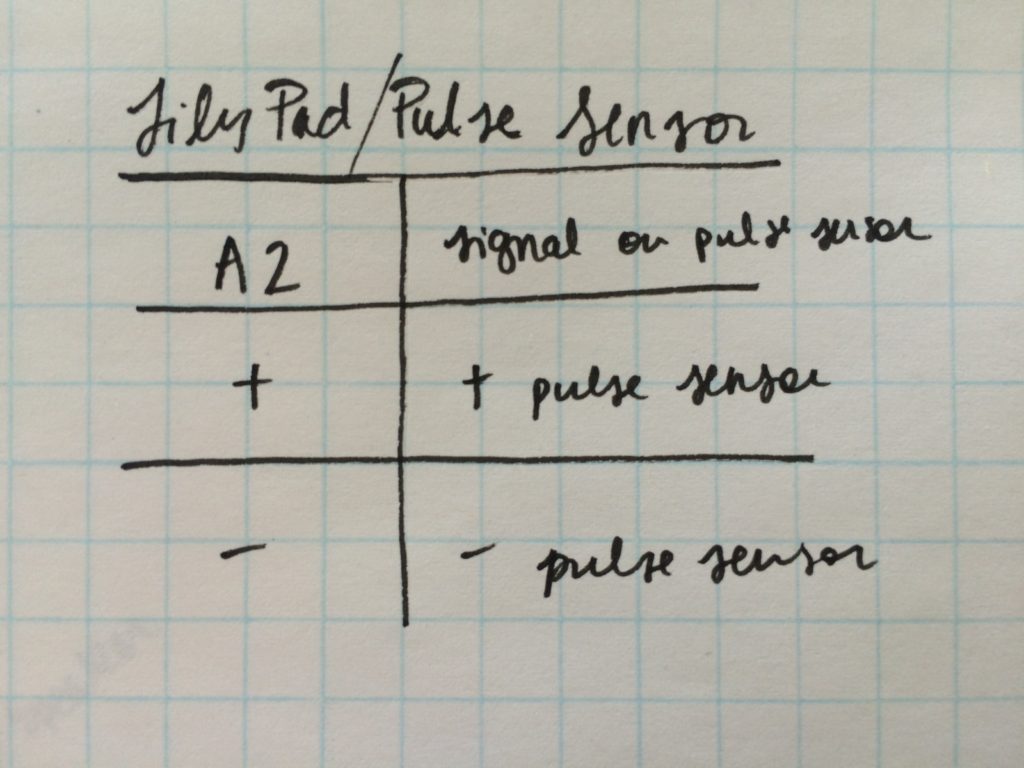 LilyPad/Pulse Sensor
A2 signal on pulse sensor
+ + pulse sensor
- - pulse sensor